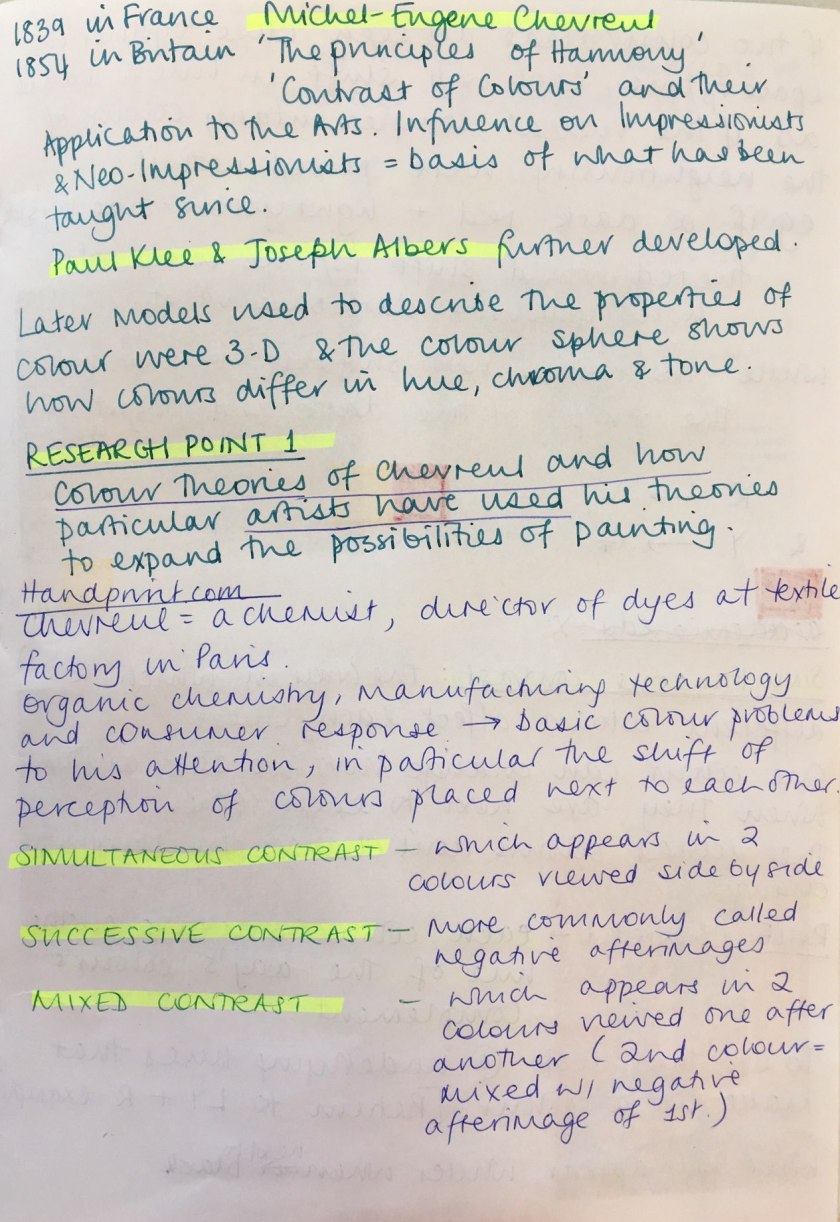 1839 in France Michel-Eugene Chevreul
1854 in Britain 'The principles of Harmony'
'Contrast of Colours' and their
Application to the Arts. Influence on Impressionists
& Neo-Impressionists = basis of what has been
taught since.
Paul Klee & Joseph Albers further developed.
Later models used to describe the properties of
colour were 3-D & the colour sphere shows
how colours differ in hue, chroma & tone.
RESEARCH POINT 1
Colour Theories of Chevreul and how
particular artists have used his theories
to expand the possibilities of painting.
Handprint.com
Chevreul = a chemist, director of dyes at textile
factory in Paris.
Organic chemistry, manufacturing technology
and consumer response → basic colour problems
to his attention, in particular the shift of
perception of colours placed next to each other.
SIMULTANEOUS CONTRAST – which appears in 2
colours viewed side by side
SUCCESSIVE CONTRAST – more commonly called
negative afterimages
MIXED CONTRAST – which appears in 2
colours veiwed one after
another (2nd colour =
mixed w/ negative
afterimage of 1st.)